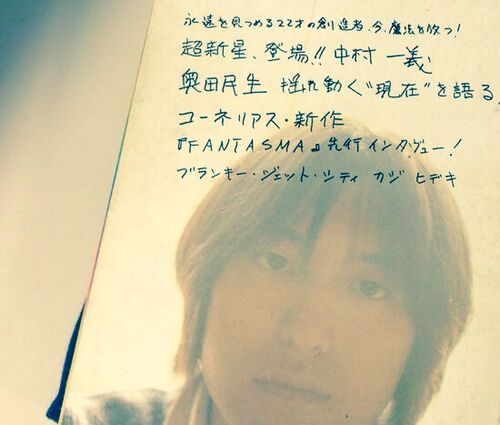 永遠を見つめる22才の創造者、今、魔法を放つ!
超新星、登場!!中村一義
奥田民生 揺れ動く“現在”を語る。
コーネリアス・新作
『FANTASMA』先行インタヴュー!
ブランキー・ジェット・シティ カジ ヒデキ